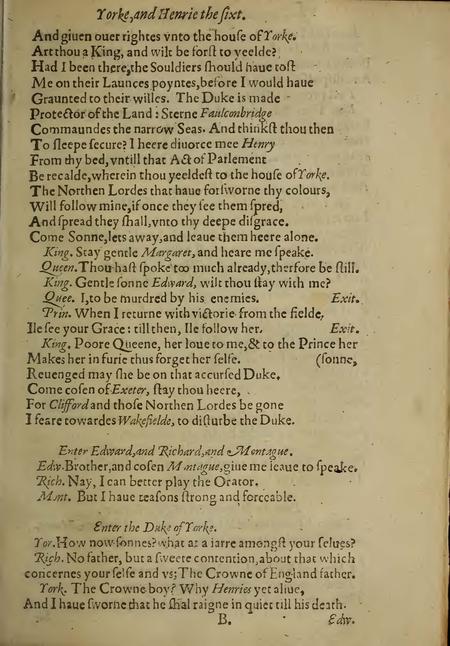 Yorke, and Henrie the sixt.
And giuen ouer rightes vnto the house of Yorke.
Art thou a King, and wilt be forst to yeelde?
Had I been there, the Souldiers should haue tost
Me on their Launces poyntes, before I would haue
Graunted to their willes. The Duke is made
Protector of the Land: Sterne Faulconbridge
Commaundes the narrow Seas. And thinkst thou then
To sleepe secure? I heere diuorce mee Henry
From thy bed, vntill that Act of Parlement
Be recalde, wherein thou yeeldest to the house of Yorke.
The Northen Lordes that haue forsworne thy colours,
Will follow mine, if once they see them spred,
And spread they shall, vnto thy deepe disgrace.
Come Sonne, lets away, and leaue them heere alone.
King. Stay gentle Margaret, and heare me speake.
Queen. Thou hast spoke too much already, therfore be still.
King. Gentle sonne Edward, wilt thou stay with me?
Quee. I, to be murdred by his enemies. Exit.
Prin. When I returne with victorie from the fielde,
Ile see your Grace: till then, Ile follow her. Exit.
King. Poore Queene, her loue to me, & to the Prince her
Makes her in furie thus forget her selfe. (sonne,
Reuenged may she be on that accursed Duke.
Come cosen of Exeter, stay thou heere,
For Clifford and those Northen Lordes be gone
I feare towardes Wakefielde, to disturbe the Duke.
Enter Edward, and Richard, and Montague.
Edw. Brother, and cosen Montague, giue me leaue to speake.
Rich. Nay, I can better play the Orator.
Mont. But I haue reasons strong and forceable.
Enter the Duke of Yorke.
Yor. How now sonnes? what at a iarre amongst your selues?
Rich. No father, but a sweete contention, about that which
concernes your selfe and vs; The Crowne of England father.
York. The Crowne boy? Why Henries yet aliue,
And I haue sworne that he shal raigne in quiet till his death.
B. Edw.